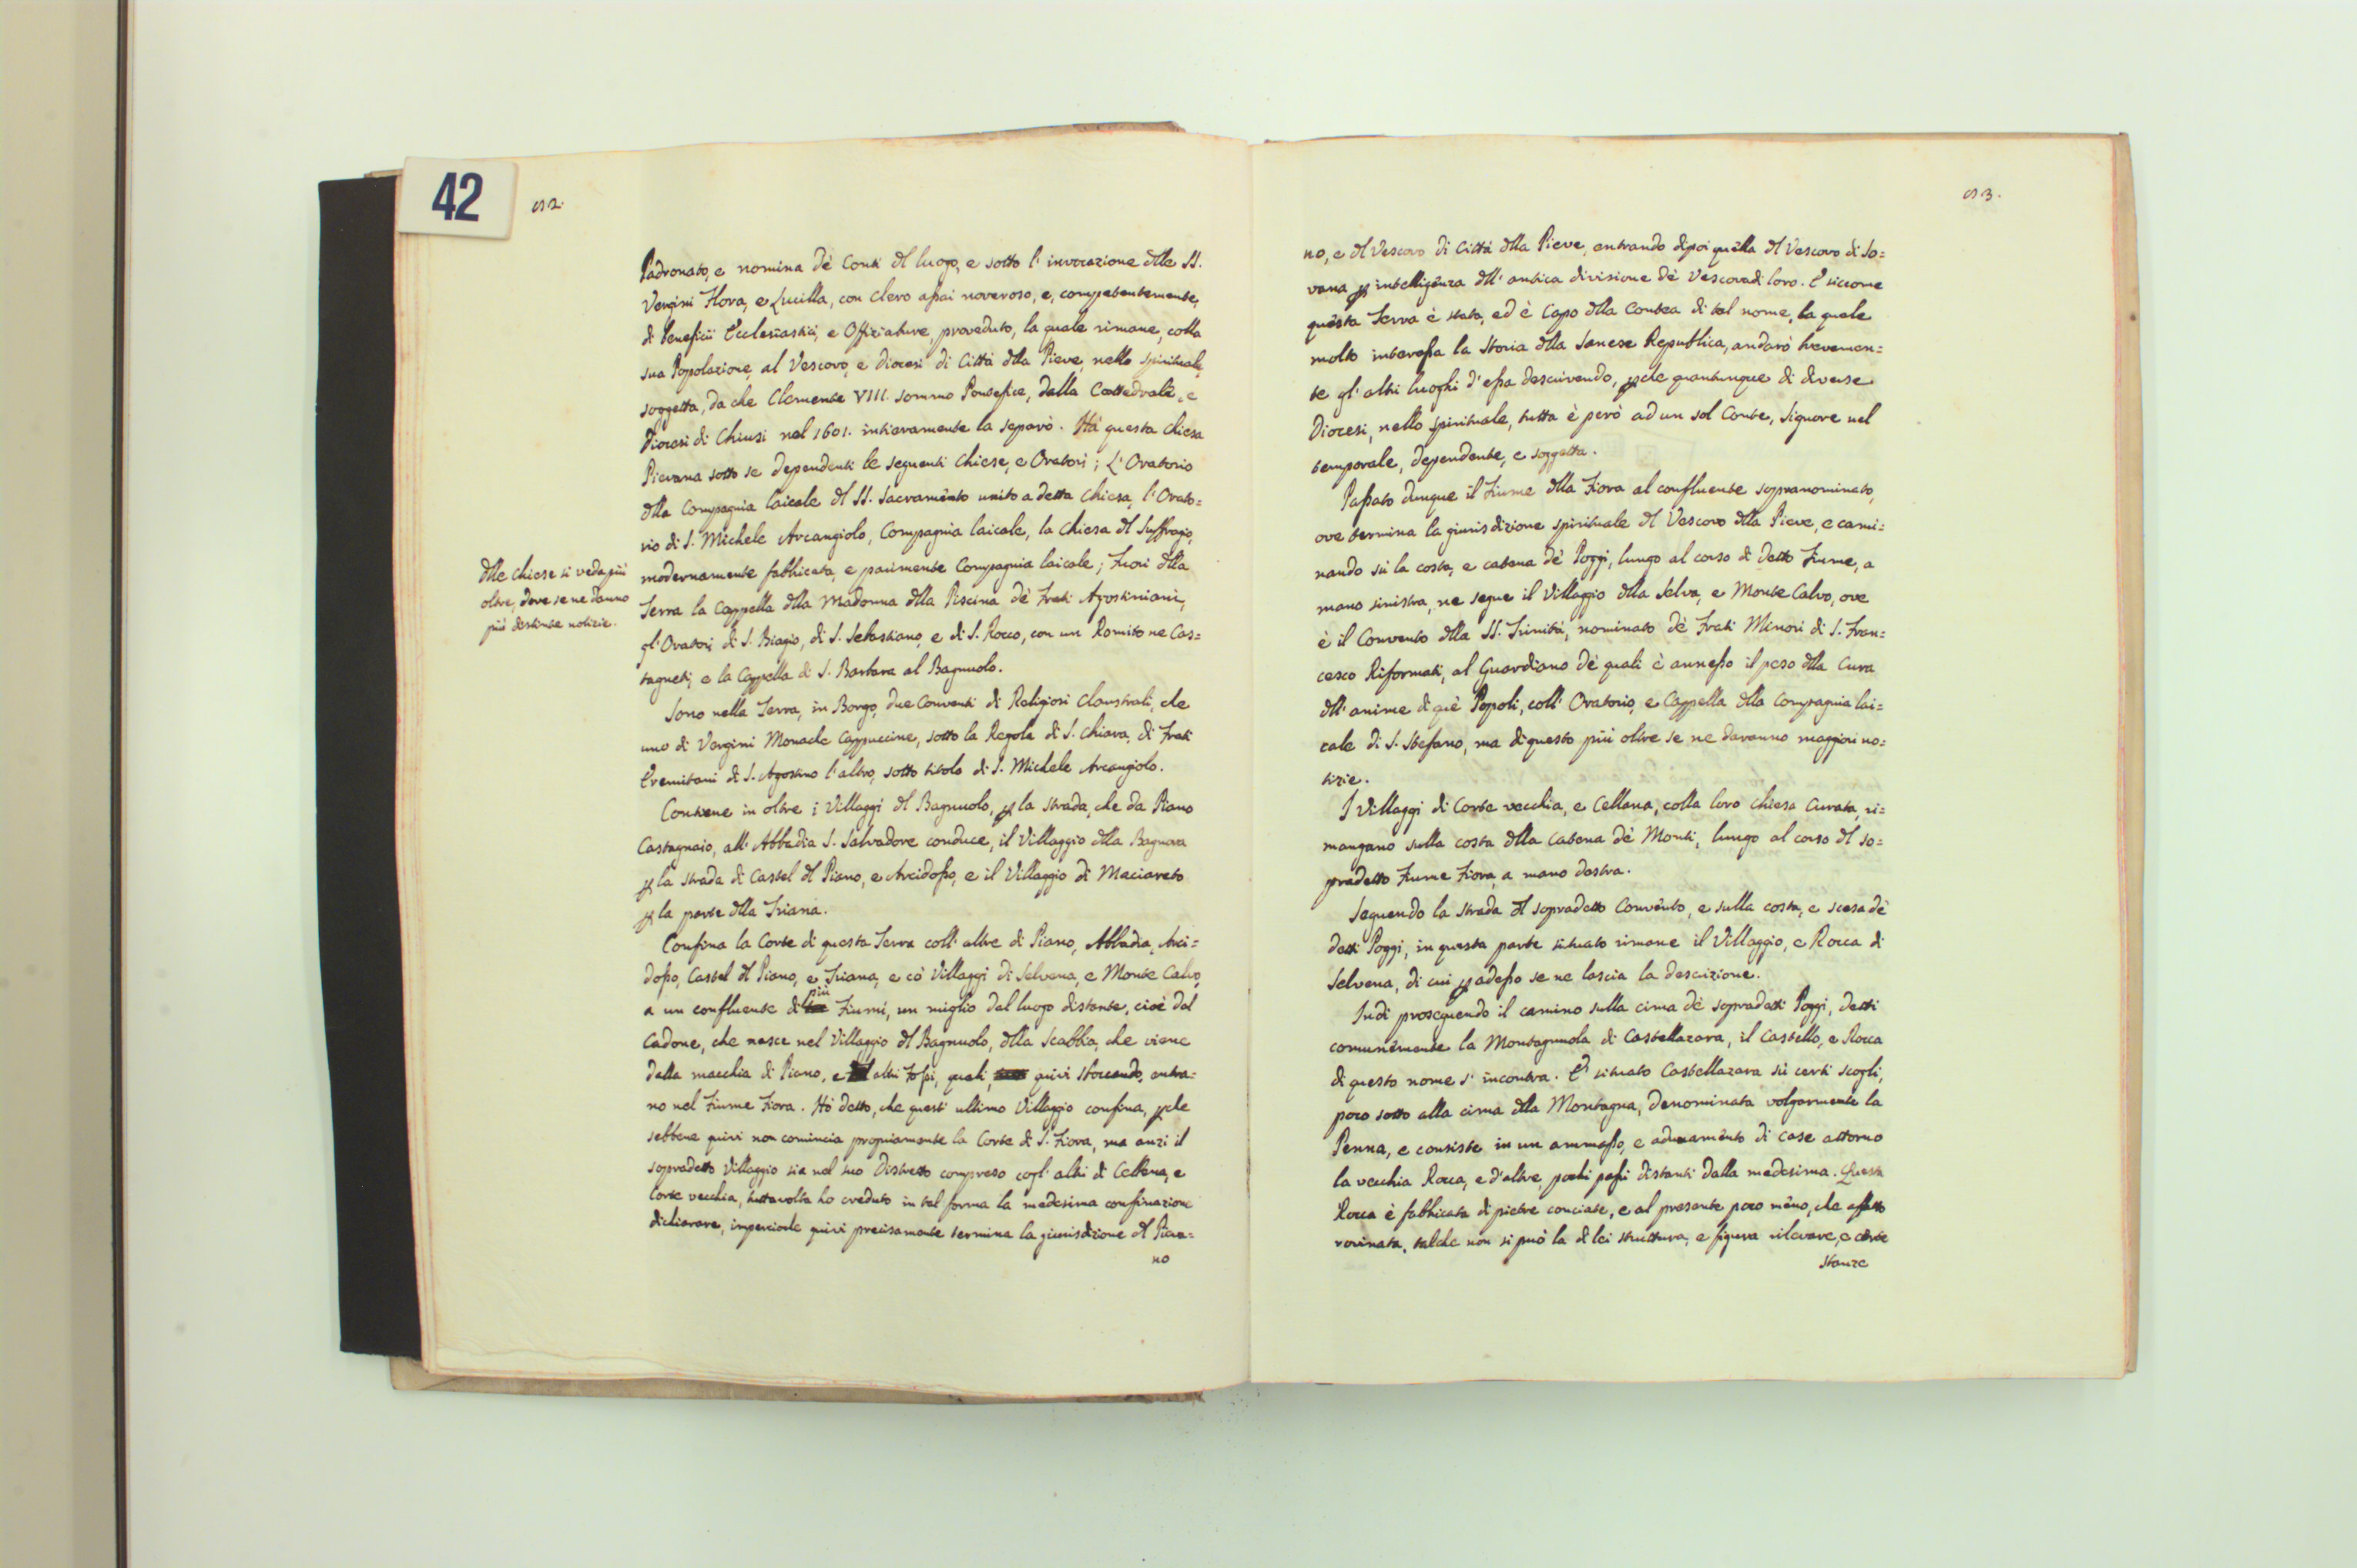 42
52.
Padronato, e nomina dè Conti dl luogo, e sotto l' invocazione dlle SS.
Vergini Flora, e Lucilla, con clero aſsai noveroso, e, competentemente,
di beneficii Ecclesiastici, e Offiziature, proveduto, la quale rimane, colla
sua Popolazione, al Vescovo, e Diocesi di Città dlla Pieve, nello spirituale,
soggetta, da che Clemente VIII. sommo Pontefice, dalla Cattedrale, e
Diocesi di Chiusi nel 1601. intieramente la separò. Hà questa Chiesa
Pievana sotto se dependenti le seguenti Chiese, e Oratori; L' Oratorio
dlla Compagnia laicale dl SS. Sacramento unito a detta Chiesa, l' Orato=
rio di S. Michele Arcangiolo, Compagnia laicale, la Chiesa dl Suffragio,
modernamente fabbricata, e parimente Compagnia laicale; Fuori dlla
Terra la Cappella dlla Madonna dlla Piscina dè Frati Agostiniani,
gl' Oratori di S. Biagio, di S. Sebastiano, e di S. Rocco, con un Romito ne Cas=
tagneti, e la Cappella di S. Barbara al Bagnuolo.
dlle Chiese si veda più
oltre, dove se ne danno
più distinte notizie.
Sono nella Terra, in Borgo, due Conventi di Religiosi Claustrali, che
uno di Vergini Monache Cappuccine, sotto la Regola di S. Chiara, di Frati
Eremitani di S. Agostino l'altro, sotto titolo di S. Michele Arcangiolo.
Contiene in oltre i Villaggi dl Bagnuolo, p la strada, che da Piano
Castagnaio, all' Abbadia S. Salvadore conduce, il Villaggio dlla Bagnara
p la strada di Castel dl Piano, e Arcidoſso, e il Villaggio di Maciareto
p la parte dlla Triana.
Confina la Corte di questa Terra coll' altre di Piano, Abbadia, Arci=
doſso, Castel dl Piano, e Triana, e cò Villaggi di Selvena, e Monte Calvo,
a un confluente di più Fiumi, un miglio dal luogo distante, cioè dal
Cadone, che nasce nel Villaggio dl Bagnuolo, dlla Scabbia, che viene
dalla macchia di Piano, e altri Foſsi, quali, quivi sboccando, entra=
no nel Fiume Fiora. Hò detto, che questi ultimo Villaggio confina, pche
sebbene quivi non comincia propriamente la Corte di S. Fiora, ma anzi il
sopradetto Villaggio sia nel suo Distretto compreso cogl' altri di Cellena, e
Corte vecchia, tuttavolta ho creduto in tal forma la medesima confinazione
dichiarare, imperciochè quivi precisamente termina la giurisdizione dl Piova=
no
53.
no, e dl Vescovo di Città dlla Pieve, entrando dipoi quèlla dl Vescovo di So=
vana p intelligènza dll' antica divisione dè Vescovadi loro. E siccome
quèsta Terra è stata, ed è Capo dlla Contea di tal nome, la quale
molto intereſsa la Storia dlla Sanese Republica, andarò brevemen=
te gl' altri luoghi d'eſsa descrivendo, pche quantunque di diverse
Diocesi, nello spirituale, tutta è però ad un sol Conte, Signore nel
temporale, dependente, e soggetta.
Paſsato dunque il Fiume dlla Fiora al confluente sopranominato,
ove termina la giurisdizione spirituale dl Vescovo dlla Pieve, e cami=
nando sù la costa, e catena dè Poggi, lungo al corso di detto Fiume, a
mano sinistra, ne segue il Villaggio dlla Selva, e Monte Calvo, ove
è il Convento dlla SS. Trinità, nominato dè Frati Minori di S. Fran=
cesco Riformati, al Guardiano dè quali è anneſso il peso dlla Cura
dll' anime di què Popoli, coll' Oratorio, e Cappella dlla Compagnia lai=
cale di S. Stefano, ma di questo più oltre se ne daranno maggiori no=
tizie.
I Villaggi di Corte vecchia, e Cellana, colla loro Chiesa Curata, ri=
mangano sulla costa dlla Catena dè Monti, lungo al corso dl so=
pradetto Fiume Fiora, a mano destra.
Seguendo la strada dl sopradetto Convènto, e sulla costa, e scesa dè
detti Poggi, in questa parte situato rimane il Villaggio, e Rocca di
Selvena, di cui p adeſso se ne lascia la descrizione.
Indi proseguendo il camino sulla cima dè sopradetti Poggi, detti
comunèmente la Montagnuola di Castellazara, il Castello, e Rocca
di questo nome s' incontra. E' situato Castellazara sù certi scogli,
poco sotto alla cima dlla Montagna, denominata volgarmente la
Penna, e consiste in un ammaſso, e adunamènto di case attorno
la vecchia Rocca, e d'altre, pochi paſsi distanti dalla medesima. Questa
Rocca è fabbricata di pietre conciate, e al presente poco mèno, che affatto
rovinata, talchè non si può la di lei struttura, e figura rilevare, e certe
stanze